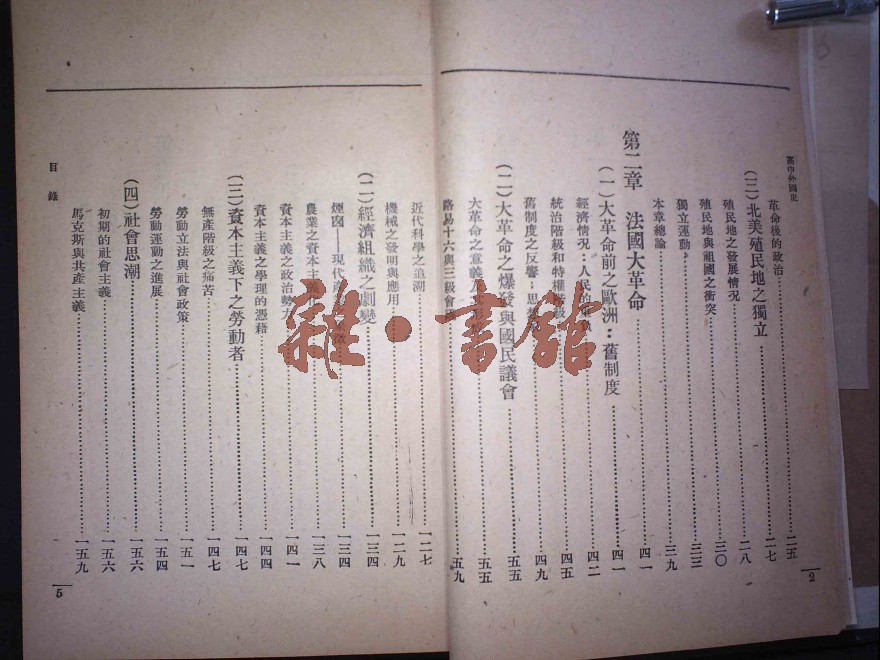 高中外國史
革命後的政治 二五
(三)北美殖民地之獨立 二七
殖民地之發展情況 二八
殖民地與祖國之衝突 三〇
獨立運動 三三
本章總論 三九
第二章 法國大革命 四一
(一)大革命前之歐洲:舊制度 四一
經濟情況:人民的 四二
統治階級和特權階級 四五
舊制度之反響:思想 四九
(二)大革命之爆發與國民議會 五五
大革命之意義 五五
路易十六與三級會議 五九
2
近代科學之追溯 一二七
機械之發明與應用 一二九
(二)經濟組織之劇變 一三四
煙囪——現代 一三四
農業之資本主義化 一三八
資本主義之政治勢力 一四一
資本主義之學理的憑藉 一四四
(三)資本主義下之勞動者 一四七
無產階級之痛苦 一四七
勞動立法與社會政策 一五一
勞動運動之進展 一五四
(四)社會思潮 一五六
初期的社會主義 一五六
馬克斯與共產主義 一五九
目錄
5
雜·書館